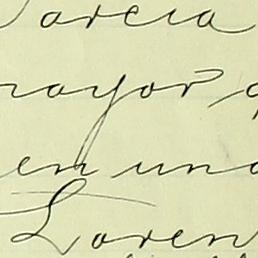 Garcia
mayor q
en una
Loren